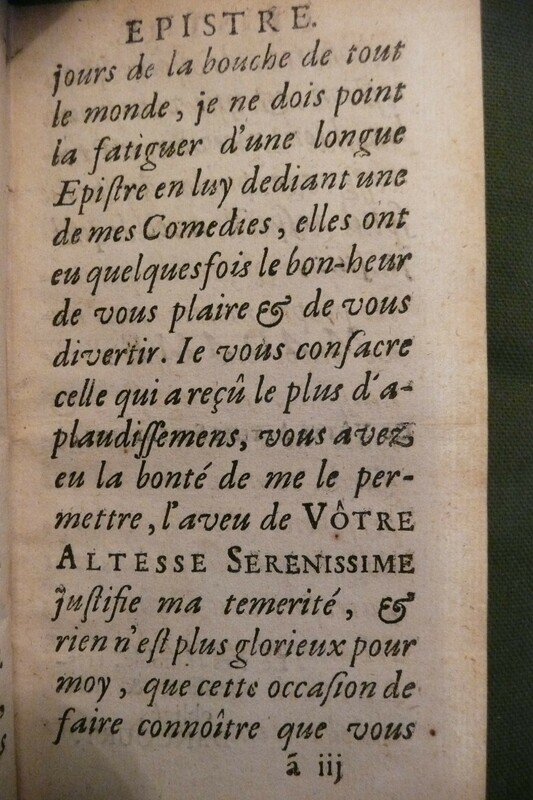 EPISTRE.
jours de la bouche de tout
le monde, je ne dois point
la fatiguer d'une longue
Epiſtre en luy dediant une
de mes Comedies, elles ont
eu quelquesfois le bon-heur
de vous plaire & de vous
divertir. Ie vous conſacre
celle qui a reçû le plus d'a-
plaudiſſemens, vous avez
eu la bonté de me le per-
mettre, l'aveu de VÔTRE
ALTESSE SERENISSIME
juſtifie ma temerité, &
rien n'eſt plus glorieux pour
moy, que cette occaſion de
faire connoître que vous
ã iij